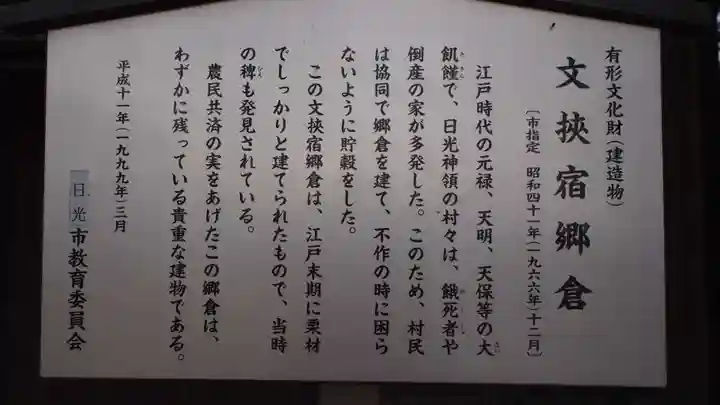 有形文化財（建造物）
文挾宿郷倉
〔市指定　昭和四十一年（一九六六年）十二月〕
江戸時代の元禄、天明、天保等の大
飢饉で、日光神領の村々は、餓死者や
倒産の家が多発した。このため、村民
は協同で郷倉を建て、不作の時に困ら
ないように貯穀をした。
この文挾宿郷倉は、江戸末期に栗材
でしっかりと建てられたもので、当時
の稗も発見されている。
農民共済の実をあげたこの郷倉は、
わずかに残っている貴重な建物である。
平成十一年（一九九九年）三月
日光市教育委員会